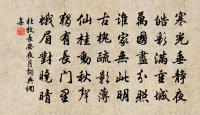 寒光垂靜夜
皓彩滿重城
萬國盡分照
誰家無此明
古槐疏影薄
仙桂動秋聲
獨有長門裏
蛾眉對曉晴
杜牧長安夜月詞典網